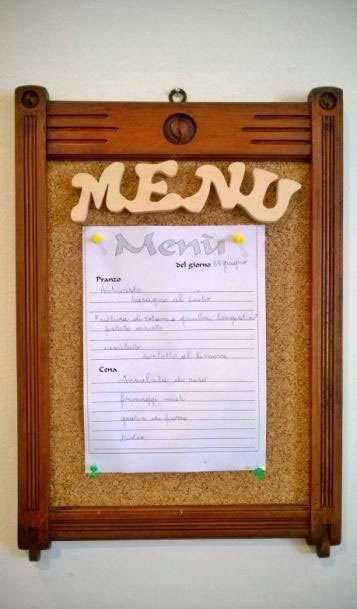 MENU
Menù
del giorno giugno
Pranzo
Antipasto
Lasagne al Pesto
Frittura di totani e gamberi
patate arrosto
insalata
sorbetto al limone
Cena
Insalata di riso
formaggi misti